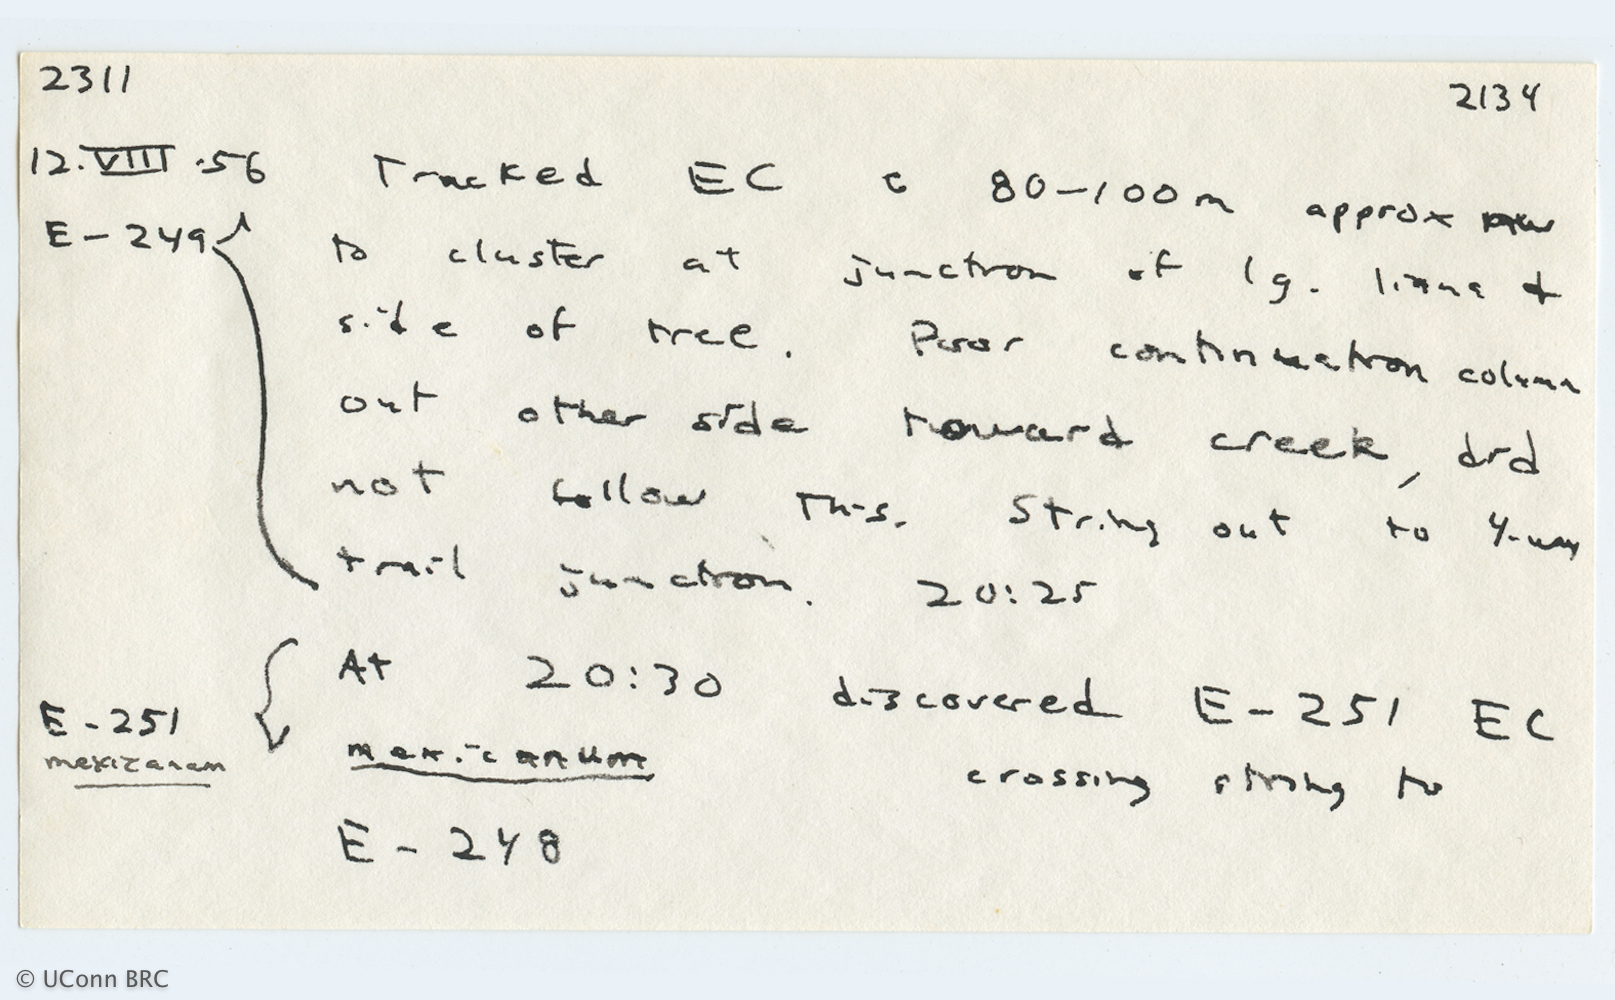 2311
2134
12.VIII.56 Tracked EC c 80-100m approx
E-249 to cluster at junction of lg. liana &
side of tree. Poor continuation column
out other side toward creek, did
not follow this. String out to Y-way
trail junction. 20:25
At 20:30 discovered E-251 EC
E-251
mexicanum
mexicanum crossing string to
E-248
© UConn BRC